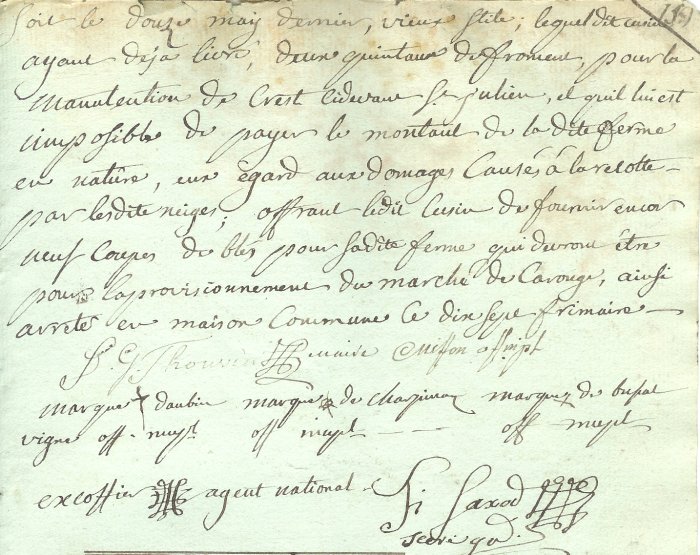 Soit le douze may dernier, vieux stile; lequel dit cusin
ayant dejà livré, deux quintaux de froment, pour la
manutention de Crest cidevant St. Julien, et qu'il lui est
impossible de payer le montant de la dite ferme
en nature, eux égard aux domages Causés à la recolte
par lesdite neiges; offrant ledit Cusin de fournir encor
neuf Coupes de bléz pour sadite ferme qui devront être
pour l'aprovisionnement du marché de Carouge, ainsi
arreté en maison Commune Ce dix sept frimaire
Thouvin maire Miffon off. mpt
marque daubin marque de Charpinaz marque de
vigne off. mupl. off mupl off mupl
excoffier agent national
Saxod
secre